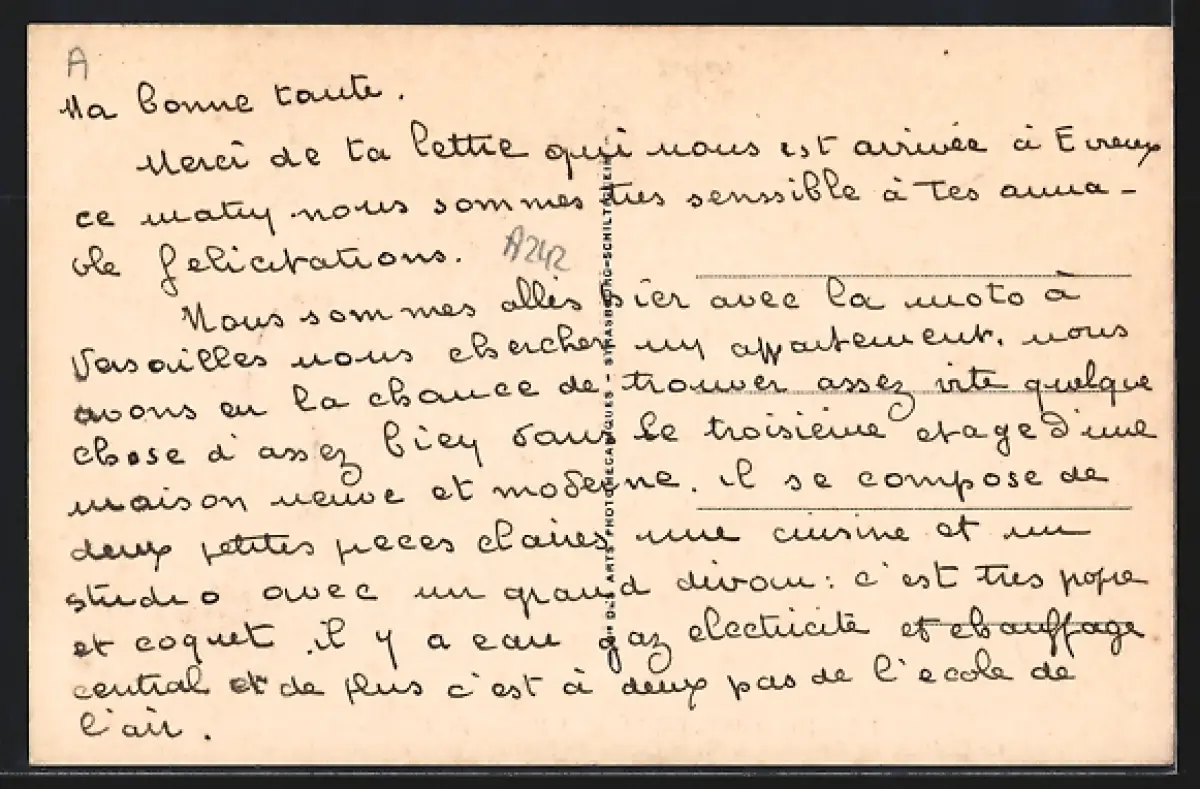 A
Ma bonne tante.
Merci de ta lettre qui nous est arrivée à Evreux
ce matin nous sommes tres senssible à tes aima-
ble felicitations.
A242
Nous sommes allés hier avec la moto à
Versailles nous chercher un appartement. nous
avons eu la chance de trouver assez vite quelque
chose d'assez bien dans le troisième etage d'une
maison neuve et moderne. il se compose de
deux petites pieces claires une cuisine et un
studio avec un grand divan: c'est tres propre
et coquet. il y a eau gaz electricité et chauffage
central et de plus c'est à deux pas de l'ecole de
l'air.
DES ARTS PHOTOMECANIQUES - STRASBOURG-SCHILTIGHEIM